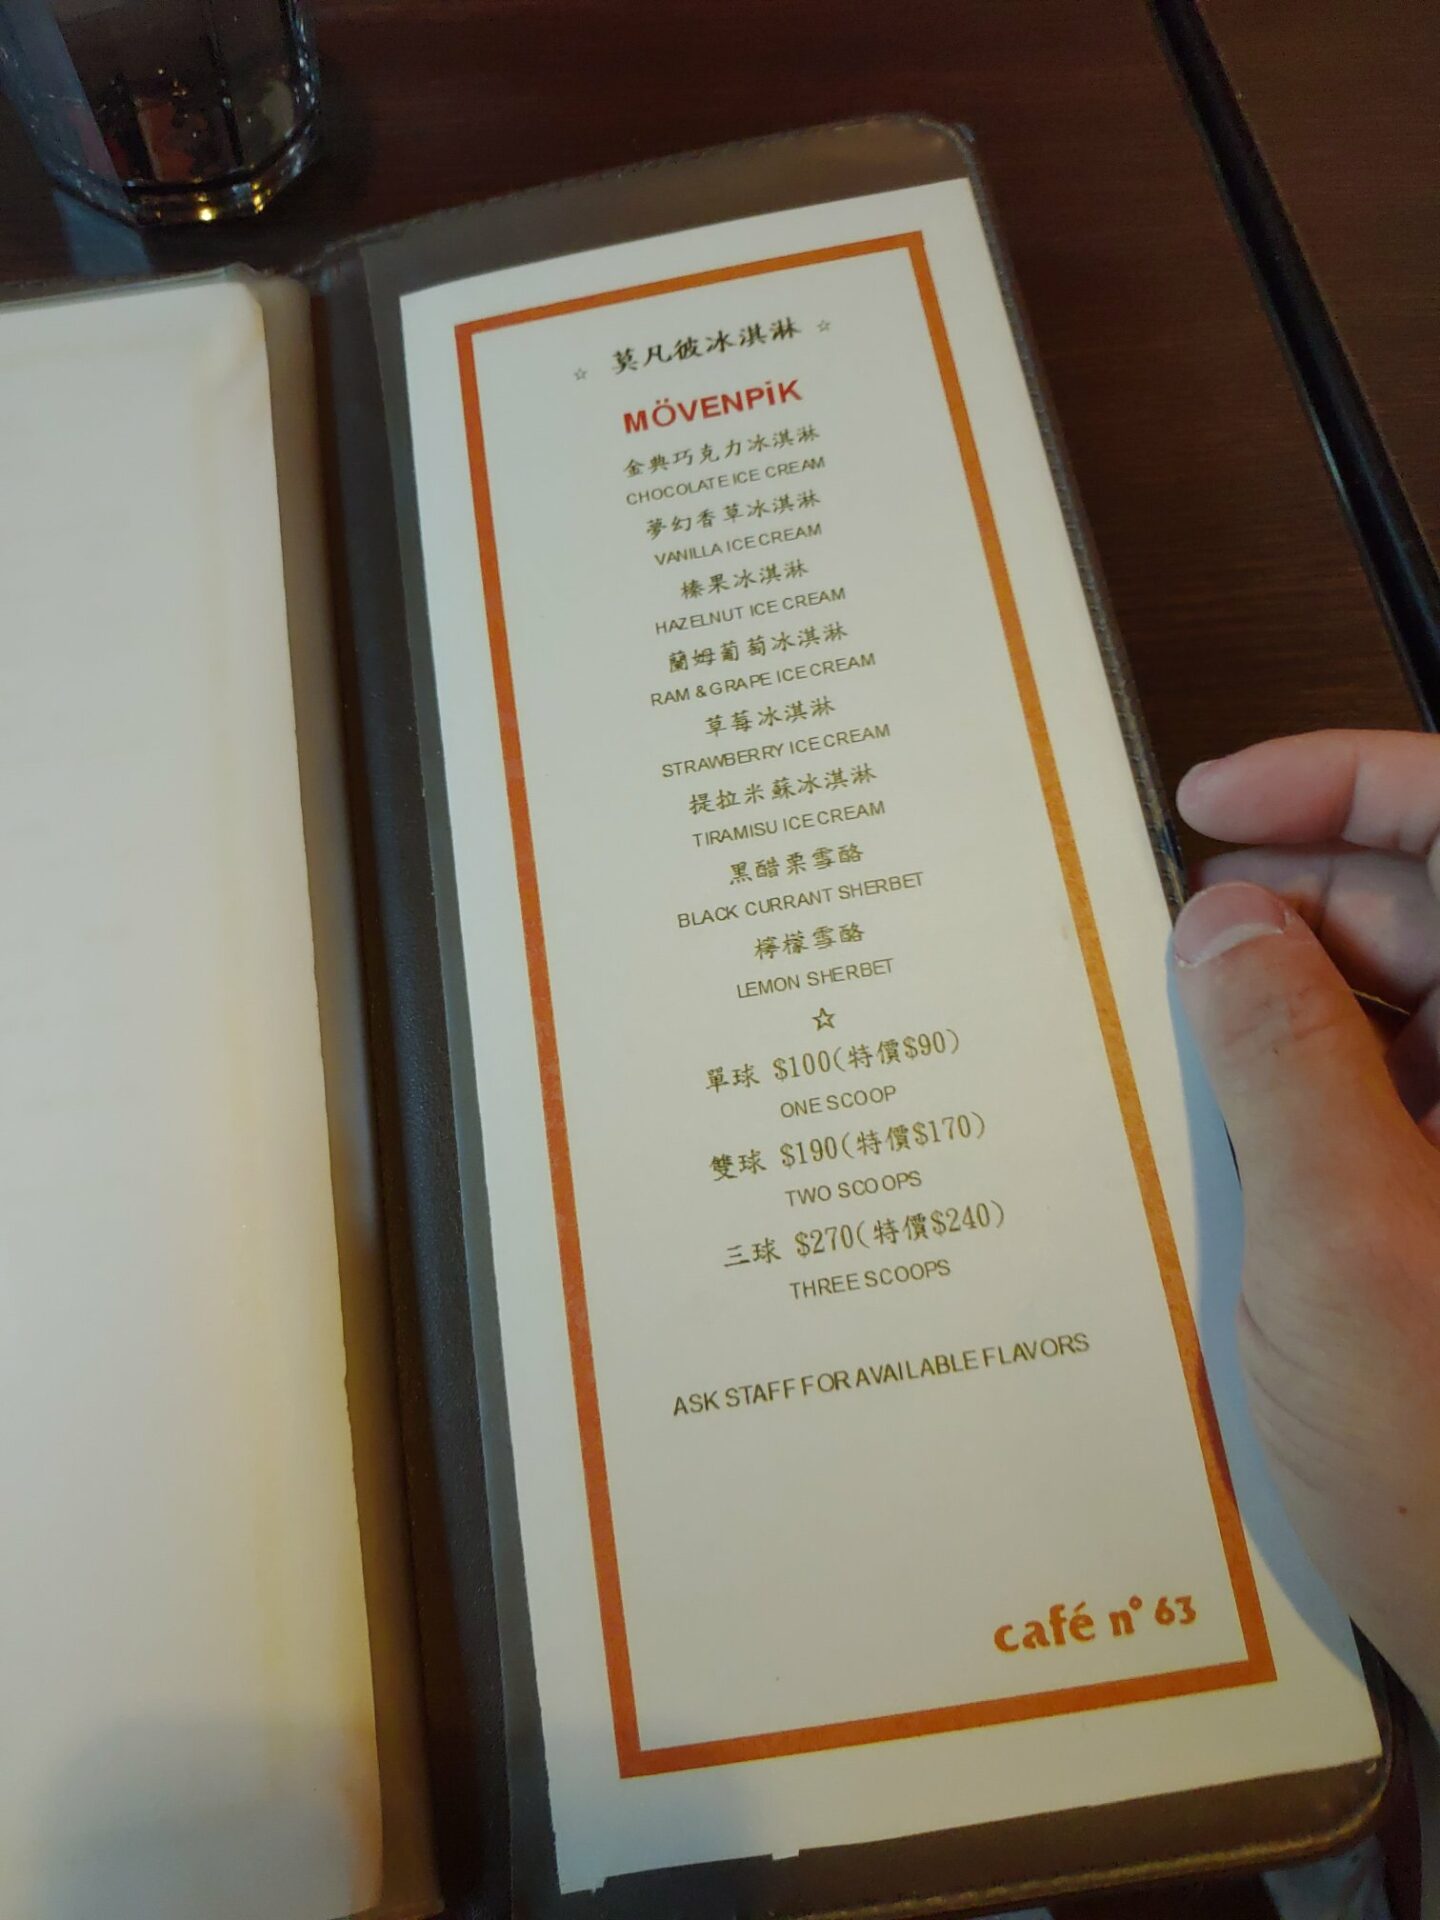 ☆ 莫凡彼冰淇淋 ☆
MÖVENPiK
金典巧克力冰淇淋
CHOCOLATE ICE CREAM
夢幻香草冰淇淋
VANILLA ICE CREAM
榛果冰淇淋
HAZELNUT ICE CREAM
蘭姆葡萄冰淇淋
RAM & GRAPE ICE CREAM
草莓冰淇淋
STRAWBERRY ICE CREAM
提拉米蘇冰淇淋
TIRAMISU ICE CREAM
黑醋栗雪酪
BLACK CURRANT SHERBET
檸檬雪酪
LEMON SHERBET
☆
單球 $100(特價$90)
ONE SCOOP
雙球 $190(特價$170)
TWO SCOOPS
三球 $270(特價$240)
THREE SCOOPS
ASK STAFF FOR AVAILABLE FLAVORS
café n° 63